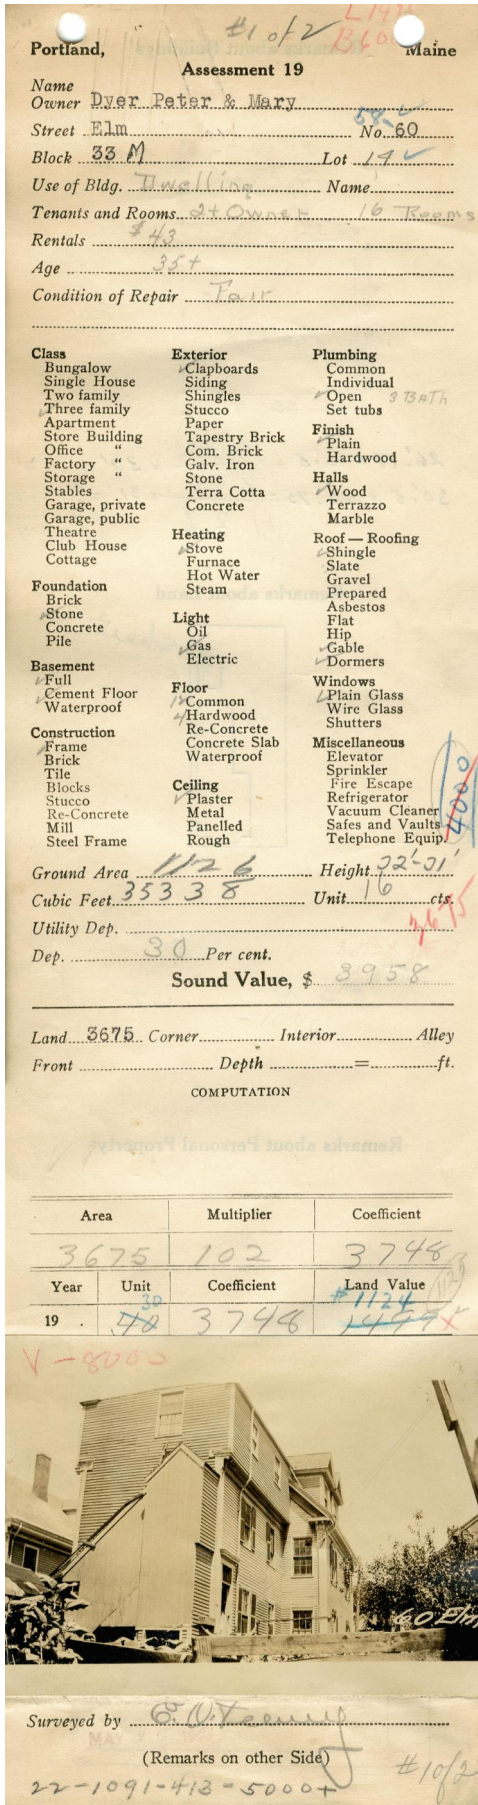 #1 of 2
Portland, Maine
Assessment 19
Name
Owner Dyer Peter & Mary
58-
Street Elm No. 60
Block 33 M Lot 14
Use of Bldg. Dwelling Name
Tenants and Rooms 2+Owner 16 Rooms
Rentals $43
Age 35+
Condition of Repair Fair
Class
Bungalow
Single House
Two family
Three family
Apartment
Store Building
Office "
Factory "
Storage "
Stables
Garage, private
Garage, public
Theatre
Club House
Cottage
Foundation
Brick
Stone
Concrete
Pile
Basement
Full
Cement Floor
Waterproof
Construction
Frame
Brick
Tile
Blocks
Stucco
Re-Concrete
Mill
Steel Frame
Exterior
Clapboards
Siding
Shingles
Stucco
Paper
Tapestry Brick
Com. Brick
Galv. Iron
Stone
Terra Cotta
Concrete
Heating
Stove
Furnace
Hot Water
Steam
Light
Oil
Gas
Electric
Floor
Common
Hardwood
Re-Concrete
Concrete Slab
Waterproof
Ceiling
Plaster
Metal
Panelled
Rough
Plumbing
Common
Individual
Open 3 BATH
Set tubs
Finish
Plain
Hardwood
Halls
Wood
Terrazzo
Marble
Roof — Roofing
Shingle
Slate
Gravel
Prepared
Asbestos
Flat
Hip
Gable
Dormers
Windows
Plain Glass
Wire Glass
Shutters
Miscellaneous
Elevator
Sprinkler
Fire Escape
Refrigerator
Vacuum Cleaner
Safes and Vaults
Telephone Equip.
4000
Ground Area 1126 Height
Cubic Feet 35338 Unit 16 cts.
3675
Utility Dep.
Dep. 30 Per cent.
Sound Value, $ 3958
Land 3675 Corner Interior Alley
Front Depth = ft.
COMPUTATION
Area Multiplier Coefficient
3675 102 3748
Year Unit Coefficient Land Value
30 #1124
19 . 40 3748 1499 x
V-8000
60 Elm
Surveyed by
(Remarks on other Side)
#1 of 2
22-1091-413-5000+